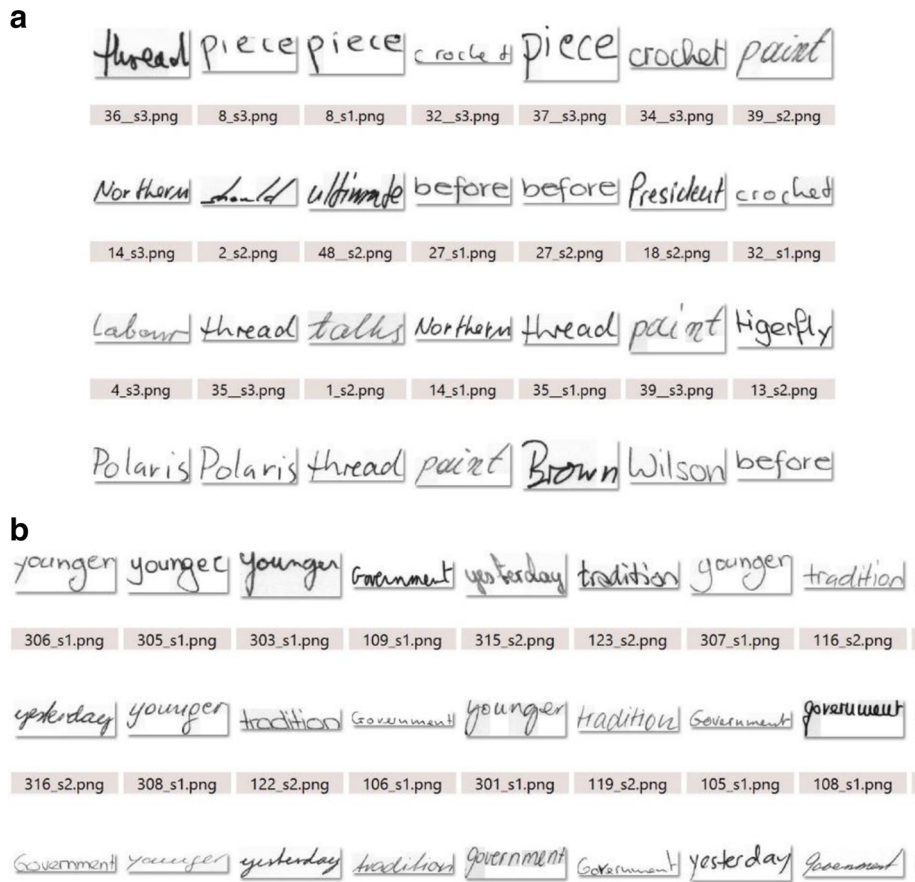 a
thread piece piece crochet piece crochet paint
36__s3.png 8_s3.png 8_s1.png 32__s3.png 37__s3.png 34__s3.png 39__s2.png
Northern should ultimate before before President crochet
14_s3.png 2_s2.png 48__s2.png 27_s1.png 27_s2.png 18_s2.png 32__s1.png
Labour thread talks Northern thread paint tigerfly
4_s3.png 35__s3.png 1_s2.png 14_s1.png 35__s1.png 39__s3.png 13_s2.png
Polaris Polaris thread paint Brown Wilson before
b
younger younger younger Government yesterday tradition younger tradition
306_s1.png 305_s1.png 303_s1.png 109_s1.png 315_s2.png 123_s2.png 307_s1.png 116_s2.png
yesterday younger tradition Government younger tradition Government government
316_s2.png 308_s1.png 122_s2.png 106_s1.png 301_s1.png 119_s2.png 105_s1.png 108_s1.png
Government younger yesterday tradition government Government yesterday government